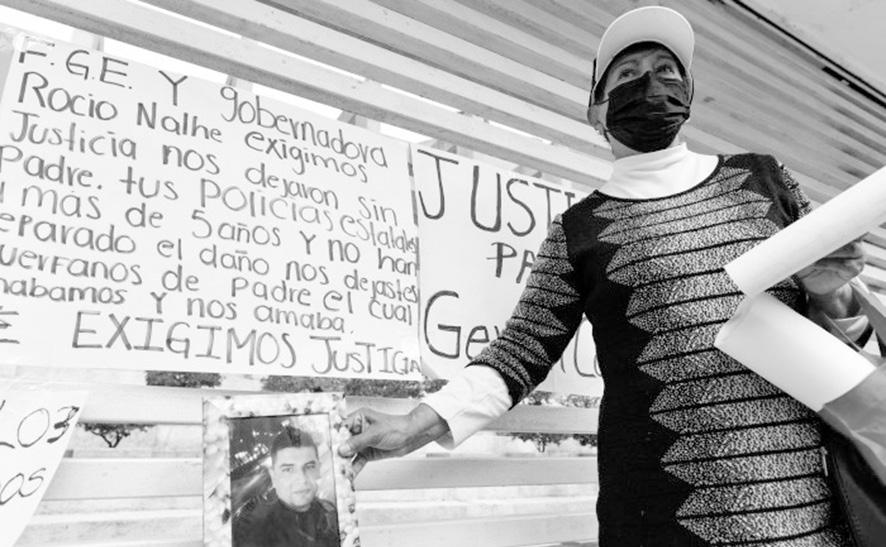 F.G.E. Y gobernadora
Rocio Nalhe exigimos
Justicia nos dejaron sin
Padre. tus Policías estatales
más de 5 años y no han
eparado el daño nos dejastes
uerfanos de Padre el cual
mabamos y nos amaba.
E EXIGIMOS JUSTICIA
JUSTI
PA
Ge
LOS
OS